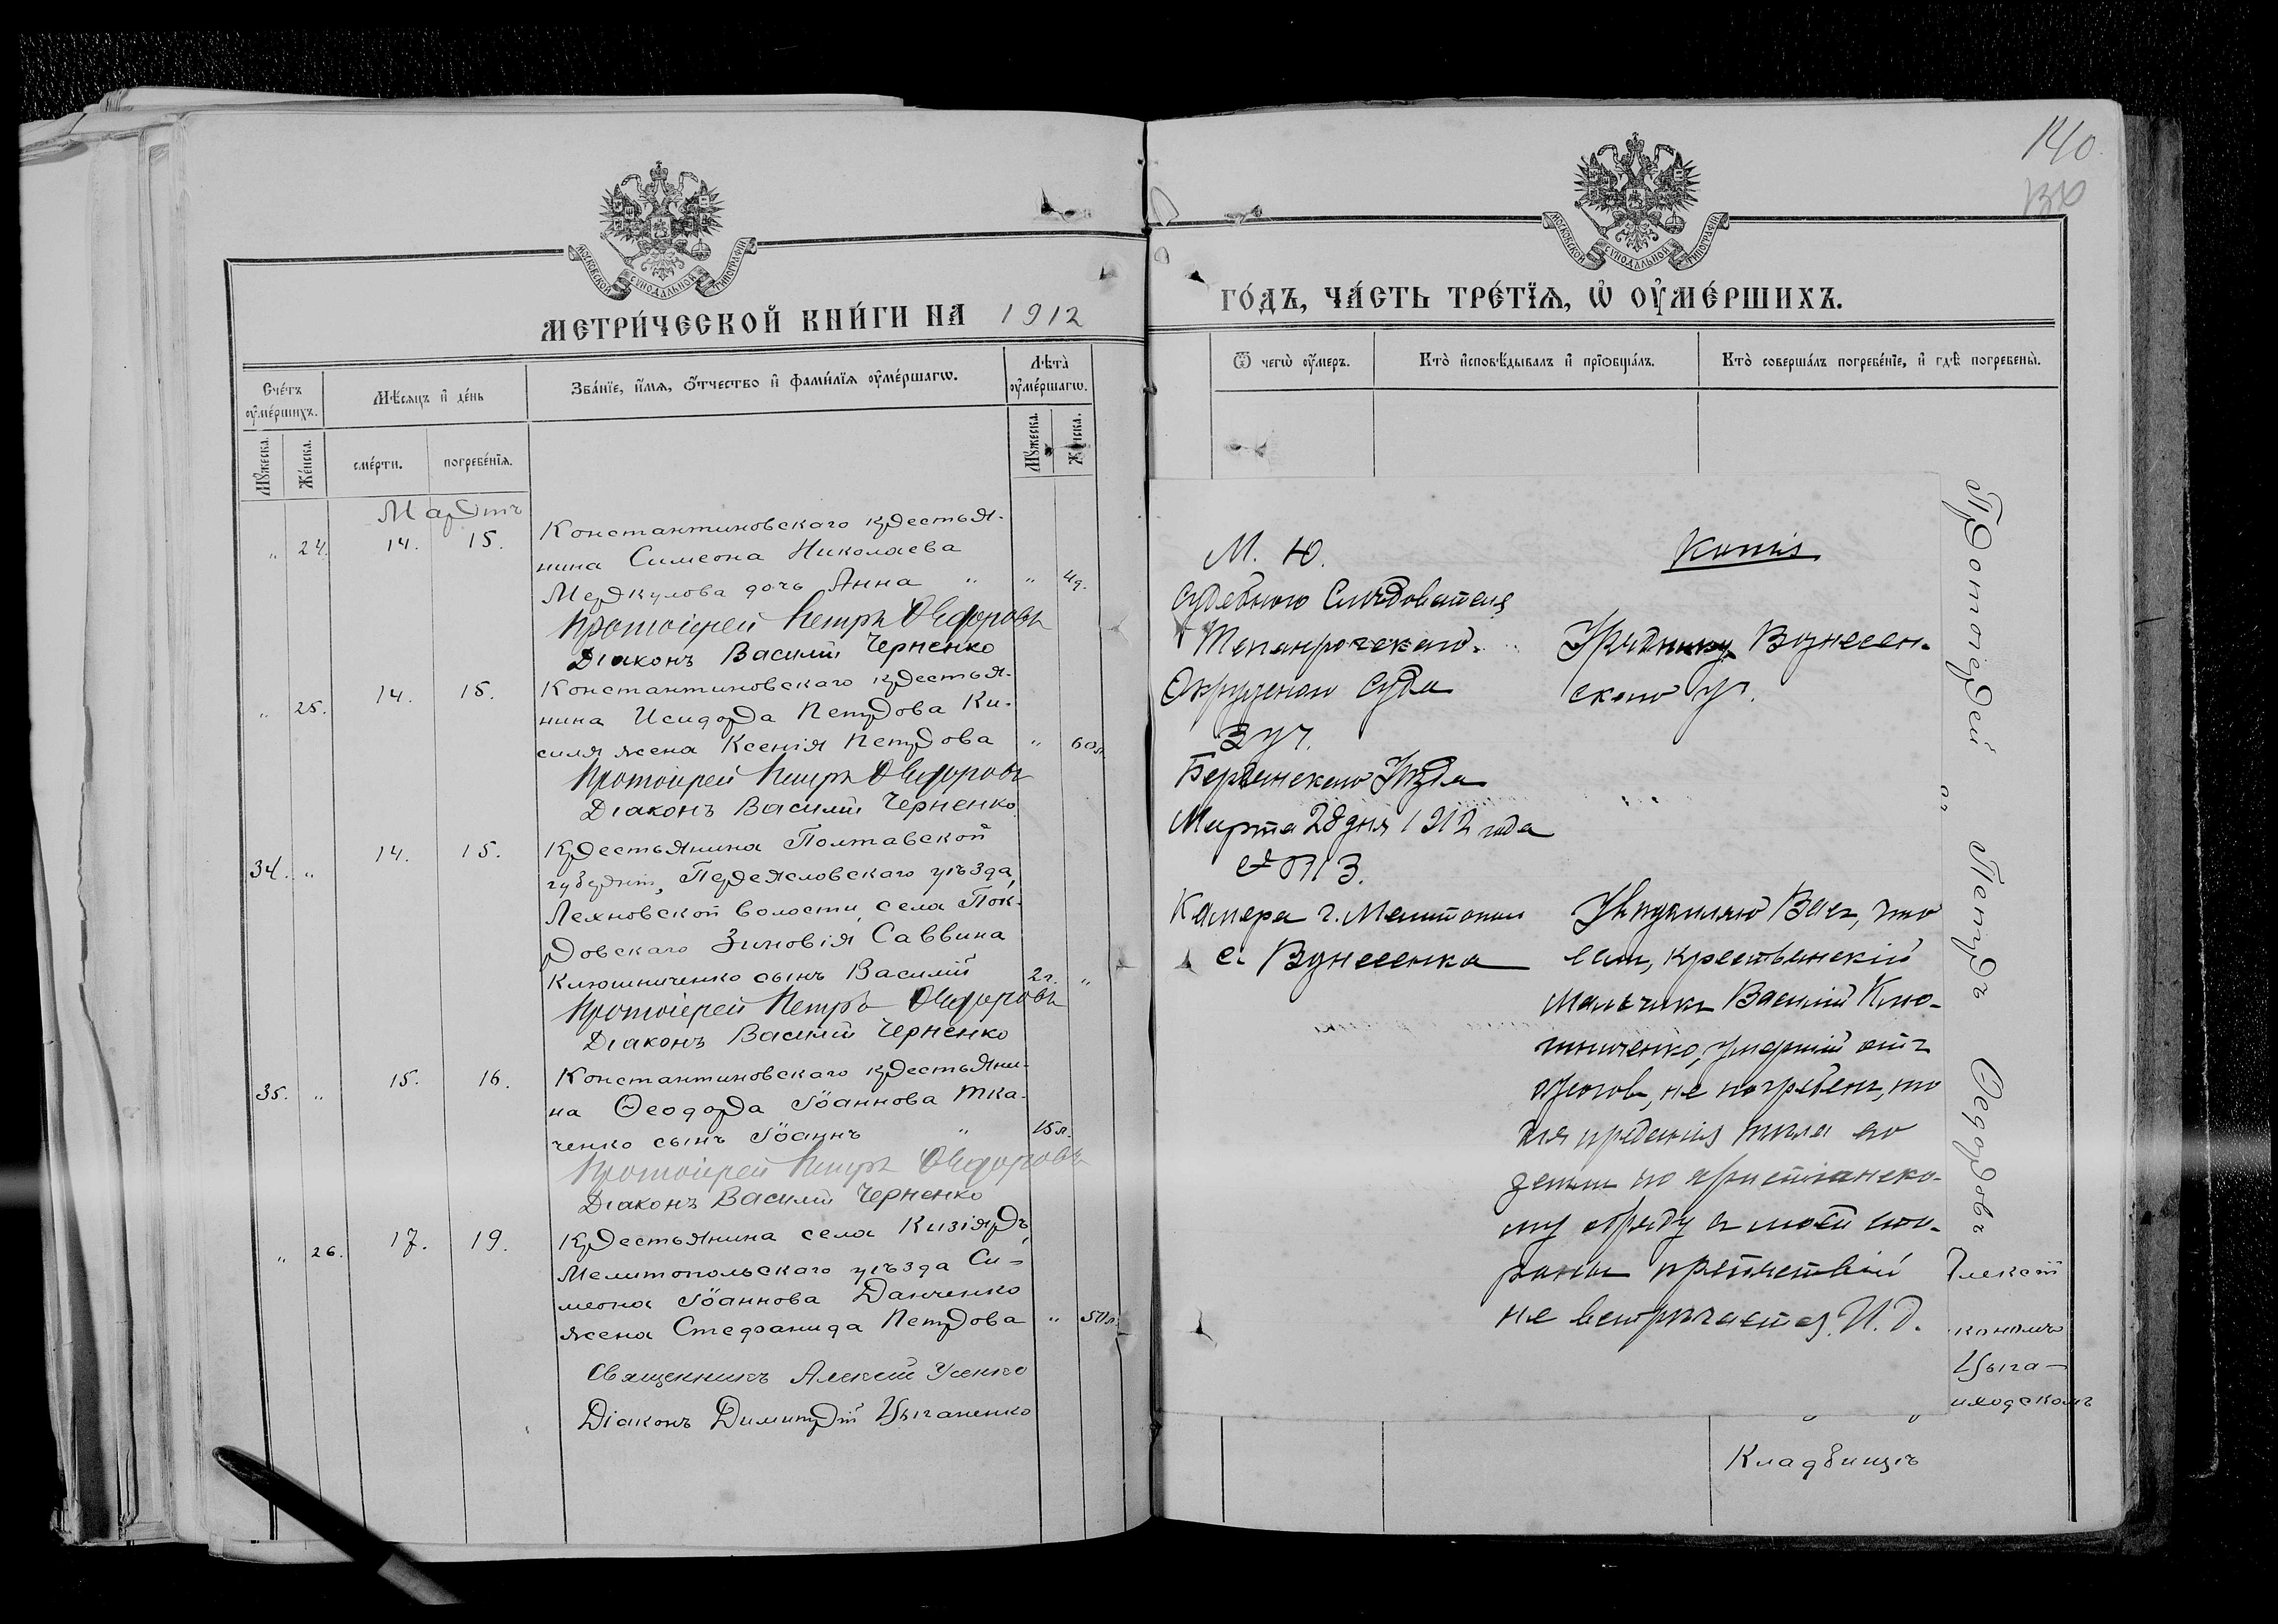 140
МОСКОВСКОЙ СУНОДАЛЬНОЙ ТИПОГРАФІИ
МЕТРИ́ЧЕСКОЙ КНИ́ГИ НА 1912
Сче́тъ ᲂу҆ме́ршихъ.
Мѣ́сяцъ и҆ де́нь
Зва́нїе, и҆́мѧ, ѻ҆́тчество и҆ фамі́лїѧ ᲂу҆ме́ршагѡ.
Лѣ̀та̀ ᲂу҆ме́ршагѡ.
Мꙋ́жеска.
Же́нска.
сме́рти.
погребе́нїѧ.
Мꙋ́жеска.
Же́нска.
Мартъ
" 24. 14. 15. Константиновскаго крестья-
нина Симеона Николаева
Меркулова дочь Анна " " 4д.
Протоіерей Петръ Ѳедоровъ
Діаконъ Василій Черненко
" 25. 14. 15. Константиновскаго крестья-
нина Исидора Петрова Ки-
силя жена Ксенія Петрова " 60л.
Протоіерей Петръ Ѳедоровъ
Діаконъ Василій Черненко
34. " 14. 15. Крестьянина Полтавской
губерніи, Переясловскаго уѣзда,
Лехновской волости, села Пок-
ровскаго Зиновія Саввина
Ключниченко сынъ Василій 2г. "
Протоіерей Петръ Ѳедоровъ
Діаконъ Василій Черненко
35. " 15. 16. Константиновскаго крестьяни-
на Ѳеодора Іоаннова Тка-
ченко сынъ Іоаннъ " 15л.
Протоіерей Петръ Ѳедоровъ
Діаконъ Василій Черненко
" 26. 17. 19. Крестьянина села Кизіяръ,
Мелитопольскаго уѣзда Си-
меона Іоаннова Данченко
жена Стефанида Петрова " 50л.
Священникъ Алексій Усенко
Діаконъ Димитрій Цыганенко
МОСКОВСКОЙ СУНОДАЛЬНОЙ ТИПОГРАФІИ
ГО́ДЪ, ЧА́СТЬ ТРЕ́ТЇѦ, Ѡ҆ ОУ҆МЕ́РШИХЪ.
Ѿ чегѡ̀ ᲂу҆́меръ.
Кто̀ и҆сповѣ́дывалъ и҆ прїѻбща́лъ.
Кто̀ соверша́лъ погребе́нїе, и҆ гдѣ̀ погребены̀.
М. Ю.
Судебного Слѣдователя
Таганрогскаго
Окружнаго Суда
3 уч.
Бердянскаго Уѣзда
Марта 28 дня 1912 года
Камера г. Мелитополь
с. Вознесенка
Копія
Уряднику Вознесен-
скаго уч.
Увѣдомляю Васъ, что
если, крестьянскій
мальчикъ Василій Клю-
шниченко, умершій отъ
ожоговъ, не погребенъ, то
для преданія тѣла его
землѣ по христіанско-
му обряду съ моей сто-
роны препятствій
не встрѣчается. И. д.
Протоіерей
Петръ Ѳедоровъ
Алексій
Цыга-
иходскомъ
Кладбищѣ